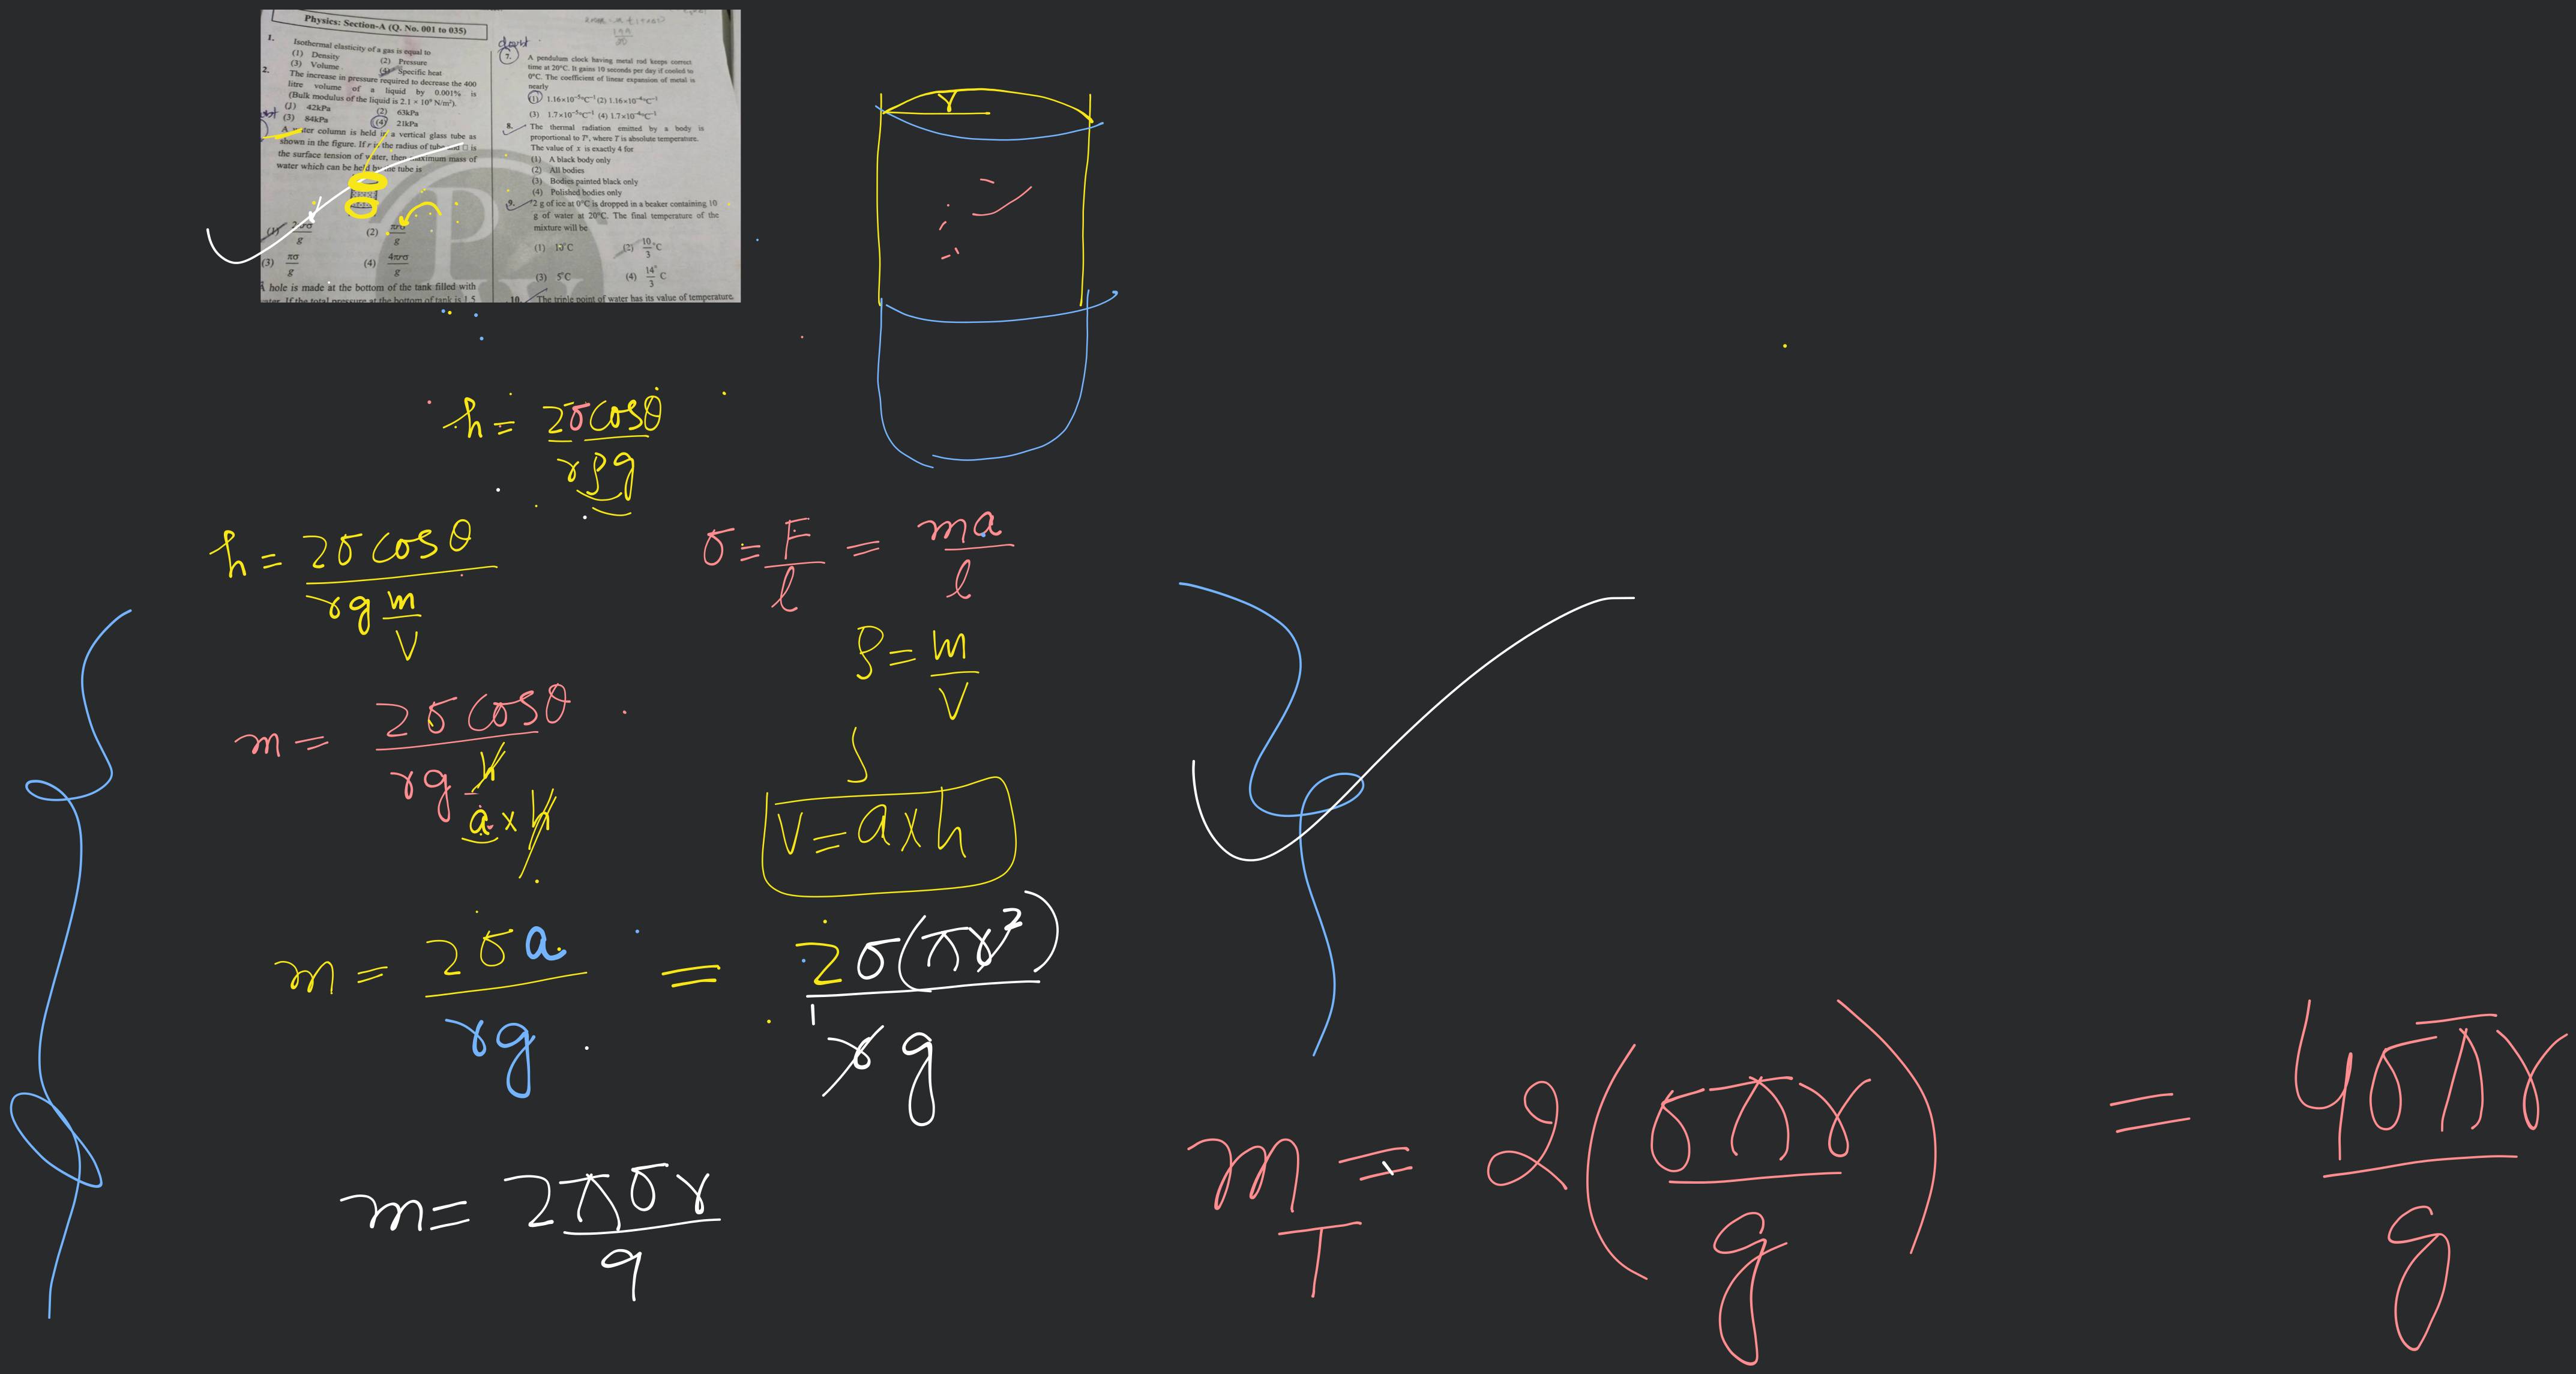 Physics: Section-A (Q. No. 001 to 035)
1. Isothermal elasticity of a gas is equal to
(1) Density (2) Pressure
(3) Volume (4) Specific heat
2. The increase in pressure required to decrease the 400
litre volume of a liquid by 0.001% is
(Bulk modulus of the liquid is 2.1 × 10⁹ N/m²).
(1) 42kPa (2) 63kPa
(3) 84kPa (4) 21kPa
A water column is held in a vertical glass tube as
shown in the figure. If r is the radius of tube and □ is
the surface tension of water, then maximum mass of
water which can be held by the tube is
(1) 2πrσ/g (2) πrσ/g
(3) πσ/g (4) 4πrσ/g
A hole is made at the bottom of the tank filled with
water. If the total pressure at the bottom of tank is 1.5
doubt
7. A pendulum clock having metal rod keeps correct
time at 20°C. It gains 10 seconds per day if cooled to
0°C. The coefficient of linear expansion of metal is
nearly
(1) 1.16×10⁻⁵°C⁻¹ (2) 1.16×10⁻⁴°C⁻¹
(3) 1.7×10⁻⁵°C⁻¹ (4) 1.7×10⁻⁴°C⁻¹
8. The thermal radiation emitted by a body is
proportional to Tˣ, where T is absolute temperature.
The value of x is exactly 4 for
(1) A black body only
(2) All bodies
(3) Bodies painted black only
(4) Polished bodies only
9. 2 g of ice at 0°C is dropped in a beaker containing 10
g of water at 20°C. The final temperature of the
mixture will be
(1) 10°C (2) 10/3 °C
(3) 5°C (4) 14°/3 C
10. The triple point of water has its value of temperature
r
h = 2σcosθ / rρg
h = 2σcosθ / rg m/V
σ = F/l = ma/l
ρ = m/V
m = 2σcosθ / rg h / a×h
V = a×h
m = 2σa / rg = 2σ(πr²) / rg
1
m = 2πσr / g
m_T = 2(σπr / g) = 4σπr / g